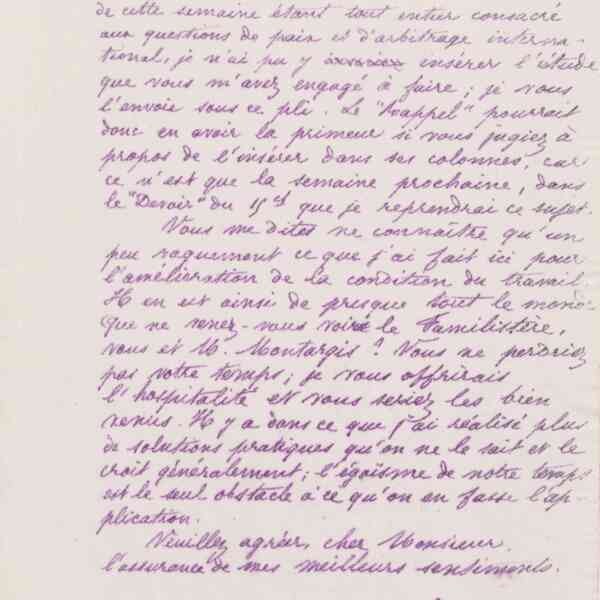 de cette semaine étant tout entier consacré
aux questions de paix et d'arbitrage interna-
tional, je n'ai pu y insérer l'étude
que vous m'avez engagé à faire ; je vous
l'envoie sous ce pli. Le "Rappel" pourrait
donc en avoir la primeur si vous jugiez à
propos de l'insérer dans ses colonnes, car
ce n'est que la semaine prochaine, dans
le "Devoir" du 15 que je reprendrai ce sujet.
Vous me dites ne connaître qu'un
peu vaguement ce que j'ai fait ici pour
l'amélioration de la condition du travail.
Il en est ainsi de presque tout le monde
Que ne venez-vous voir le Familistère,
vous et M. Montargis ? Vous ne perdriez
pas votre temps ; je vous offrirais
l'hospitalité et vous seriez les bien
venus. Il y a dans ce que j'ai réalisé plus
de solutions pratiques qu'on ne le sait et le
croit généralement ; l'égoïsme de notre temps
est le seul obstacle à ce qu'on en fasse l'ap-
plication.
Veuillez agréer, cher Monsieur,
l'assurance de mes meilleurs sentiments.